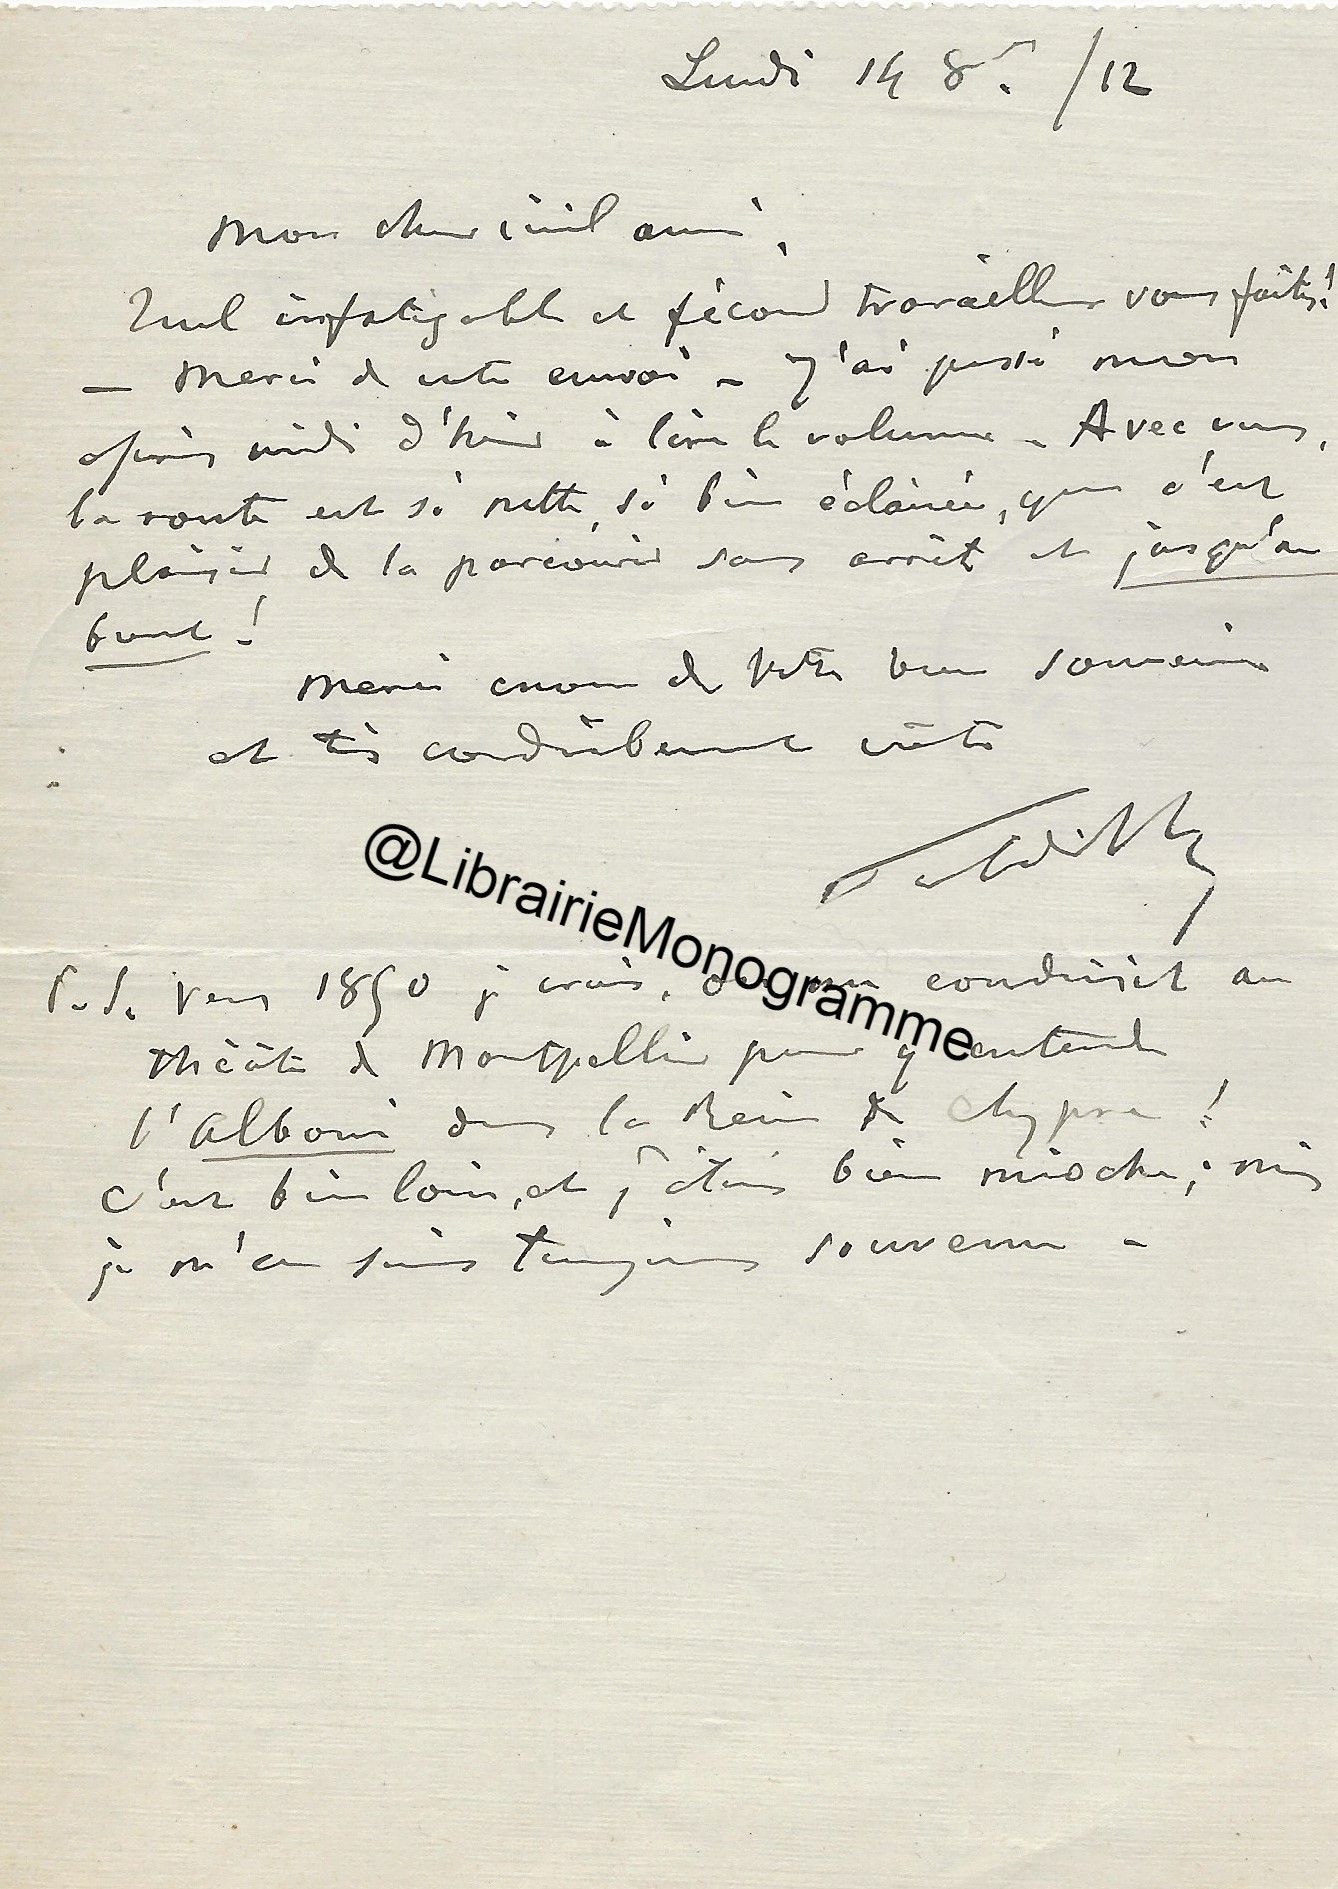 Lundi 14 8re /12
Mon cher vieil ami,
Quel infatigable et fécond travailleur vous faites!
— Merci de cet envoi - J'ai passé mon
après midi d'hier à lire le volume - Avec vous,
la route est si nette, si bien éclairée, que c'est
plaisir de la parcourir sans arrêt et jusqu'au
bout !
Merci encore de votre bon souvenir
et très cordialement vôtre
@LibrairieMonogramme
P.S. Vers 1850 je crois, on me conduisit au
théâtre de Montpellier pour y entendre
l'Alboni dans la Reine de Chypre !
C'est bien loin, et j'étais bien mioche ; mais
je m'en suis toujours souvenu -